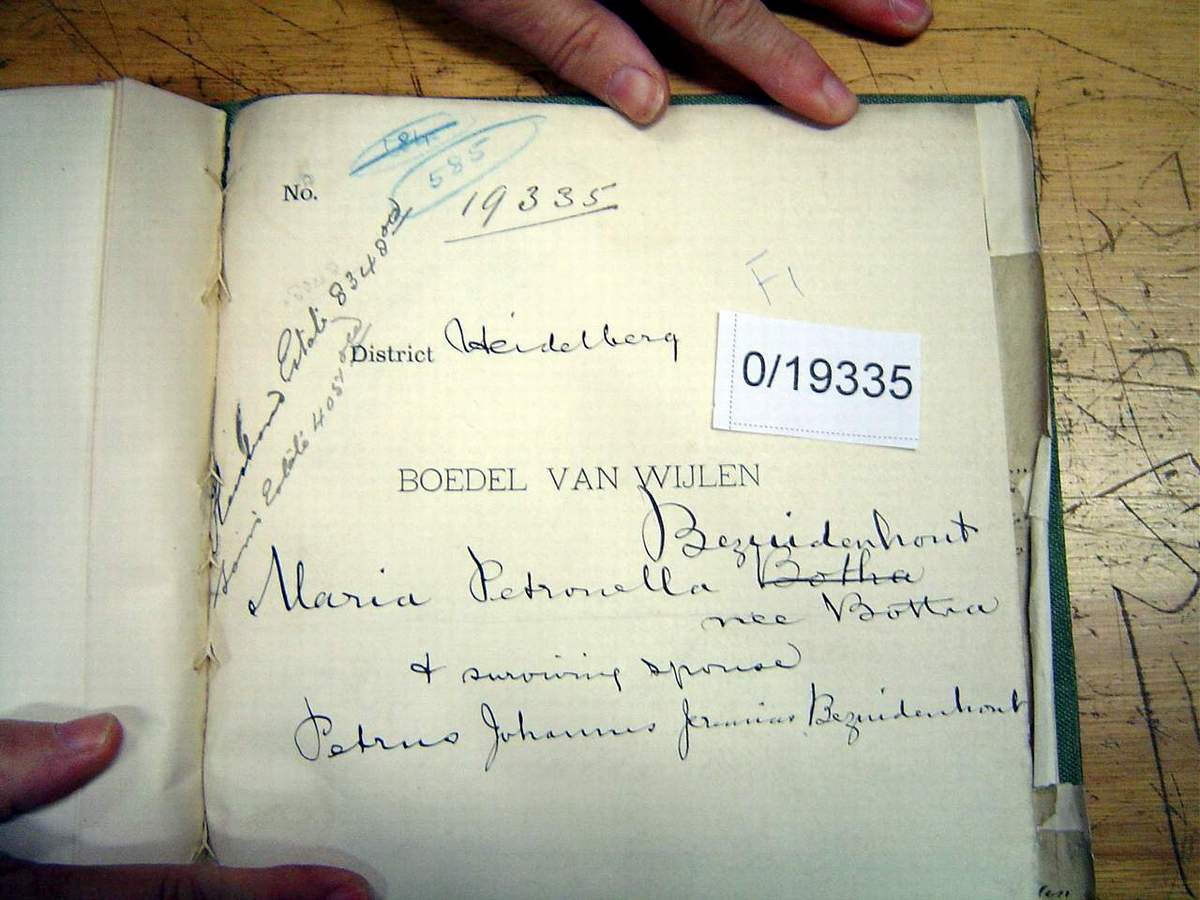 585
No.
19335
F1
Husband Estate 83480
Estate 40580
District Heidelberg
0/19335
BOEDEL VAN WIJLEN
Bezuidenhout
Maria Petronella Botha
nee Botha
& surviving spouse
Petrus Johannes Jeremias Bezuidenhout